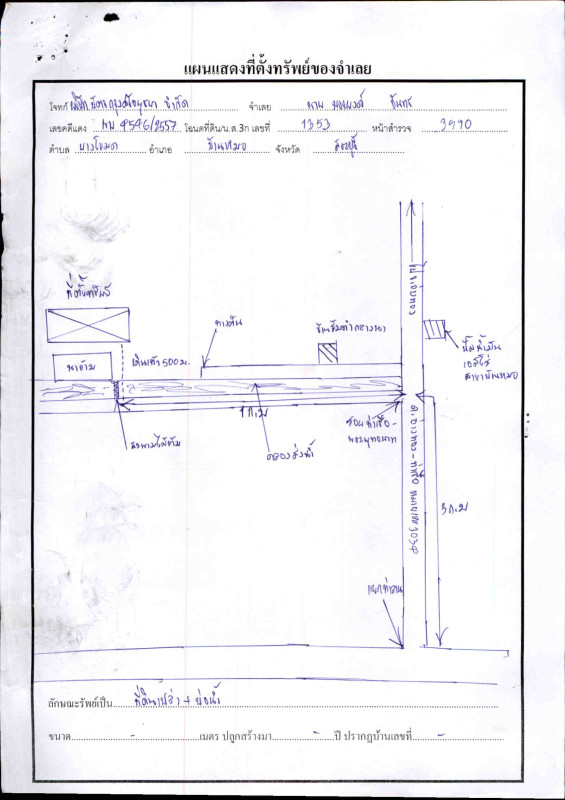 แผนแสดงที่ตั้งทรัพย์ของจำเลย
โจทก์ จำกัด จำเลย นาย จันทร์
เลขคดีแดง ผบ 4546/2557 โฉนดที่ดิน/น.ส.3ก เลขที่ 1353 หน้าสำรวจ 3990
ตำบล บางโขมด อำเภอ บ้านหมอ จังหวัด สระบุรี
ที่ตั้งทรัพย์
ทางดิน
นาข้าว
เดินเข้า 500 ม.
ปั๊มน้ำมัน
เอสโซ่
สาขาบ้านหมอ
1 ก.ม
สะพานไม้ข้าม
คลองส่งน้ำ
ถ.อ่างทอง - ท่าเรือ หมายเลข 3034
3 ก.ม
แยกท่าลาน
ลักษณะทรัพย์เป็น ที่ดินเปล่า + บ่อน้ำ
ขนาด - เมตร ปลูกสร้างมา - ปี ปรากฏบ้านเลขที่ -